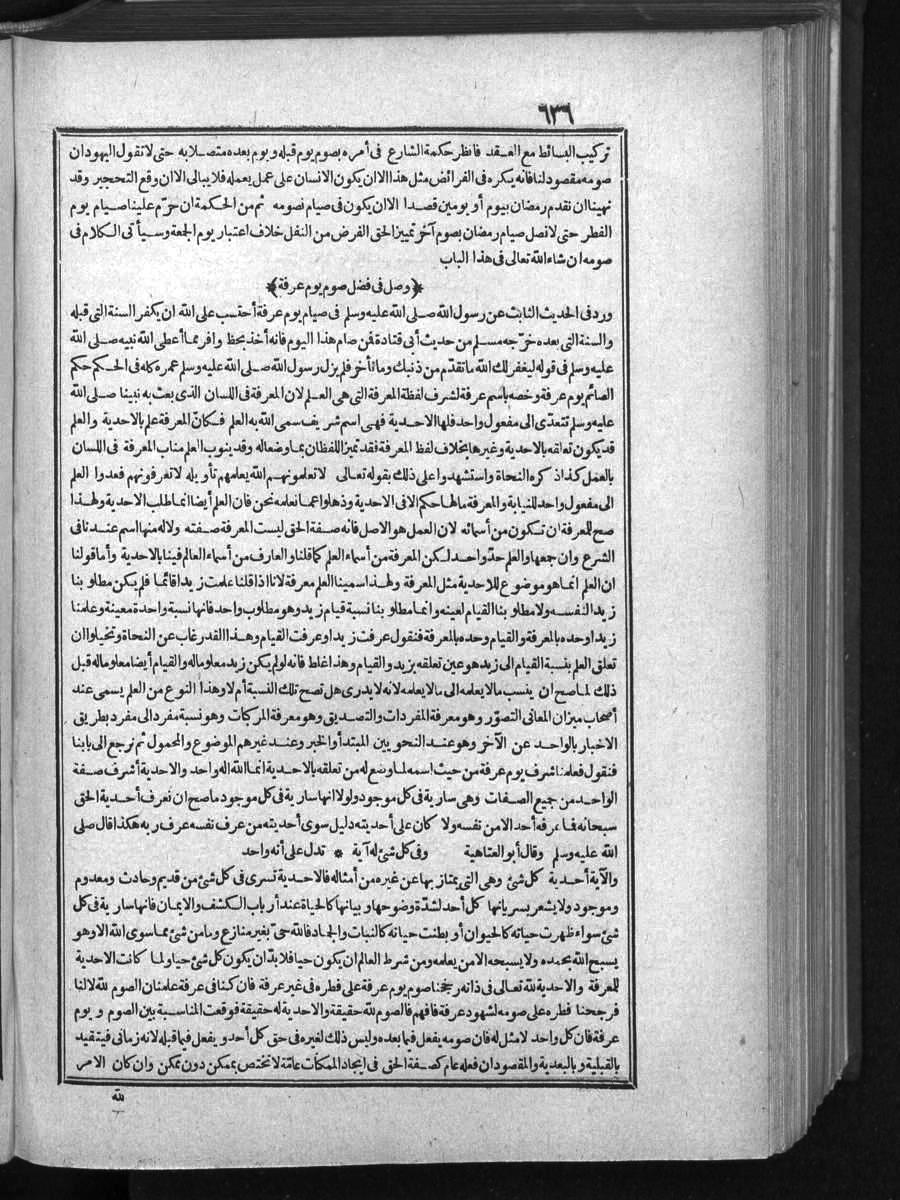 ٦٣٦
تركيب البسائط مع العقد فانظر حكمة الشارع فى أمره بصوم يوم قبله و يوم بعده متصلا به حتى لا تقول اليهود ان
صومه مقصود لنا فانه يكره فى الفرائض مثل هذا الا ان يكون الانسان على عمل يعمله فلا يبالى الا ان وقع التحجير وقد
نهينا ان نقدم رمضان بيوم أو يومين قصدا الا ان يكون فى صيام نصومه ثم من الحكمة ان حرّم علينا صيام يوم
الفطر حتى لا نصل صيام رمضان بصوم آخر تمييزا لحق الفرض من النفل خلاف اعتبار يوم الجمعة وسيأتى الكلام فى
صومه ان شاء الله تعالى فى هذا الباب
﴿وصل فى فضل صوم يوم عرفة﴾
ورد فى الحديث الثابت عن رسول الله صلى الله عليه وسلم فى صيام يوم عرفة أحتسب على الله ان يكفر السنة التى قبله
والسنة التى بعده خرّجه مسلم من حديث أبى قتادة فمن صام هذا اليوم فانه أخذ بحظ وافر مما أعطى الله نبيه صلى الله
عليه وسلم فى قوله ليغفر لك الله ما تقدّم من ذنبك وما تأخر فلم يزل رسول الله صلى الله عليه وسلم عمره كله فى الحكم حكم
الصائم يوم عرفة وخصه باسم عرفة لشرف لفظة المعرفة التى هى العلم لان المعرفة فى اللسان الذى بعث به نبينا صلى الله
عليه وسلم تتعدّى الى مفعول واحد فلها الاحدية فهى اسم شريف سمى الله به العلم فكانّ المعرفة علم بالاحدية والعلم
قد يكون تعلقه بالاحدية وغيرها بخلاف لفظ المعرفة فقد تميز اللفظان بما وضعا له وقد ينوب العلم مناب المعرفة فى اللسان
بالعمل كذا ذكره النحاة واستشهدوا على ذلك بقوله تعالى لا تعلمونهم الله يعلمهم تأويله لا تعرفونهم فعدوا العلم
الى مفعول واحد للنيابة والمعرفة ما لها حكم الا فى الاحدية وذهلوا عما نعلمه نحن فان العلم أيضا انما طلب الاحدية ولهذا
صح للمعرفة ان تكون من أسمائه لان العمل هو الاصل فانه صفة الحق ليست المعرفة صفته ولا له منها اسم عندنا فى
الشرع وان جمعها والعلم حدّ واحد لكن المعرفة من أسماء العلم كما قلنا والعارف من أسماء العالم فينا بالاحدية وأما قولنا
ان العلم انما هو موضوع للاحدية مثل المعرفة ولهذا سمينا العلم معرفة لانا اذا قلنا علمت زيدا قائما فلم يكن مطلوبنا
زيدا لنفسه ولا مطلوبنا القيام لعينه وانما مطلوبنا نسبة قيام زيد وهو مطلوب واحد فانها نسبة واحدة معينة وعلمنا
زيدا وحده بالمعرفة والقيام وحده بالمعرفة فنقول عرفت زيدا وعرفت القيام وهذا القدر غاب عن النحاة وتخيلوا ان
تعلق العلم بنسبة القيام الى زيد هو عين تعلقه بزيد والقيام وهذا غلط فانه لو لم يكن زيد معلوما له والقيام أيضا معلوما له قبل
ذلك لما صح ان ينسب ما لا يعلمه الى ما لا يعلمه لانه لا يدرى هل تصح تلك النسبة أم لا وهذا النوع من العلم يسمى عند
أصحاب ميزان المعانى التصوّر وهو معرفة المفردات والتصديق وهو معرفة المركبات وهو نسبة مفرد الى مفرد بطريق
الاخبار بالواحد عن الآخر وهو عند النحويين المبتدأ والخبر وعند غيرهم الموضوع والمحمول ثم نرجع الى بابنا
فنقول فعلمنا شرف يوم عرفة من حيث اسمه لما وضع له من تعلقه بالاحدية انما الله اله واحد والاحدية أشرف صفة
الواحد من جميع الصفات وهى سارية فى كل موجود ولولا انها سارية فى كل موجود ما صح ان نعرف أحدية الحق
سبحانه فما عرفه أحد الا من نفسه ولا كان على أحديته دليل سوى أحديته من عرف نفسه عرف ربه هكذا قال صلى
الله عليه وسلم وقال أبو العتاهية وفى كل شئ له آية * تدل على أنه واحد
والآية أحدية كل شئ وهى التى يمتاز بها عن غيره من أمثاله فالاحدية تسرى فى كل شئ من قديم وحادث ومعدوم
وموجود ولا يشعر بسريانها كل أحد لشدّة وضوحها وبيانها كالحياة عند أرباب الكشف والايمان فانها سارية فى كل
شئ سواء ظهرت حياته كالحيوان أو بطنت حياته كالنبات والجماد فالله حىّ بغير منازع وما من شئ مما سوى الله الا وهو
يسبح الله بحمده ولا يسبحه الا من يعلمه ومن شرط العالم ان يكون حيا فلا بدّ ان يكون كل شئ حيا ولما كانت الاحدية
للمعرفة والاحدية لله تعالى فى ذاته رجحنا صوم يوم عرفة على فطره فى غير عرفة فان كنا فى عرفة علمنا ان الصوم لله لا لنا
فرجحنا فطره على صومه لشهود عرفة فافهم فالصوم لله حقيقة والاحدية له حقيقة فوقعت المناسبة بين الصوم و يوم
عرفة فان كل واحد لا مثل له فان صومه يفعل فيما بعده وليس ذلك لغيره فى حق كل أحد و يفعل فيما قبله لانه زمانى فيتقيد
بالقبلية و بالبعدية والمقصود ان فعله عام كصفة الحق فى ايجاد الممكنات عامّة لا تختص بممكن دون ممكن وان كان الامر
لله